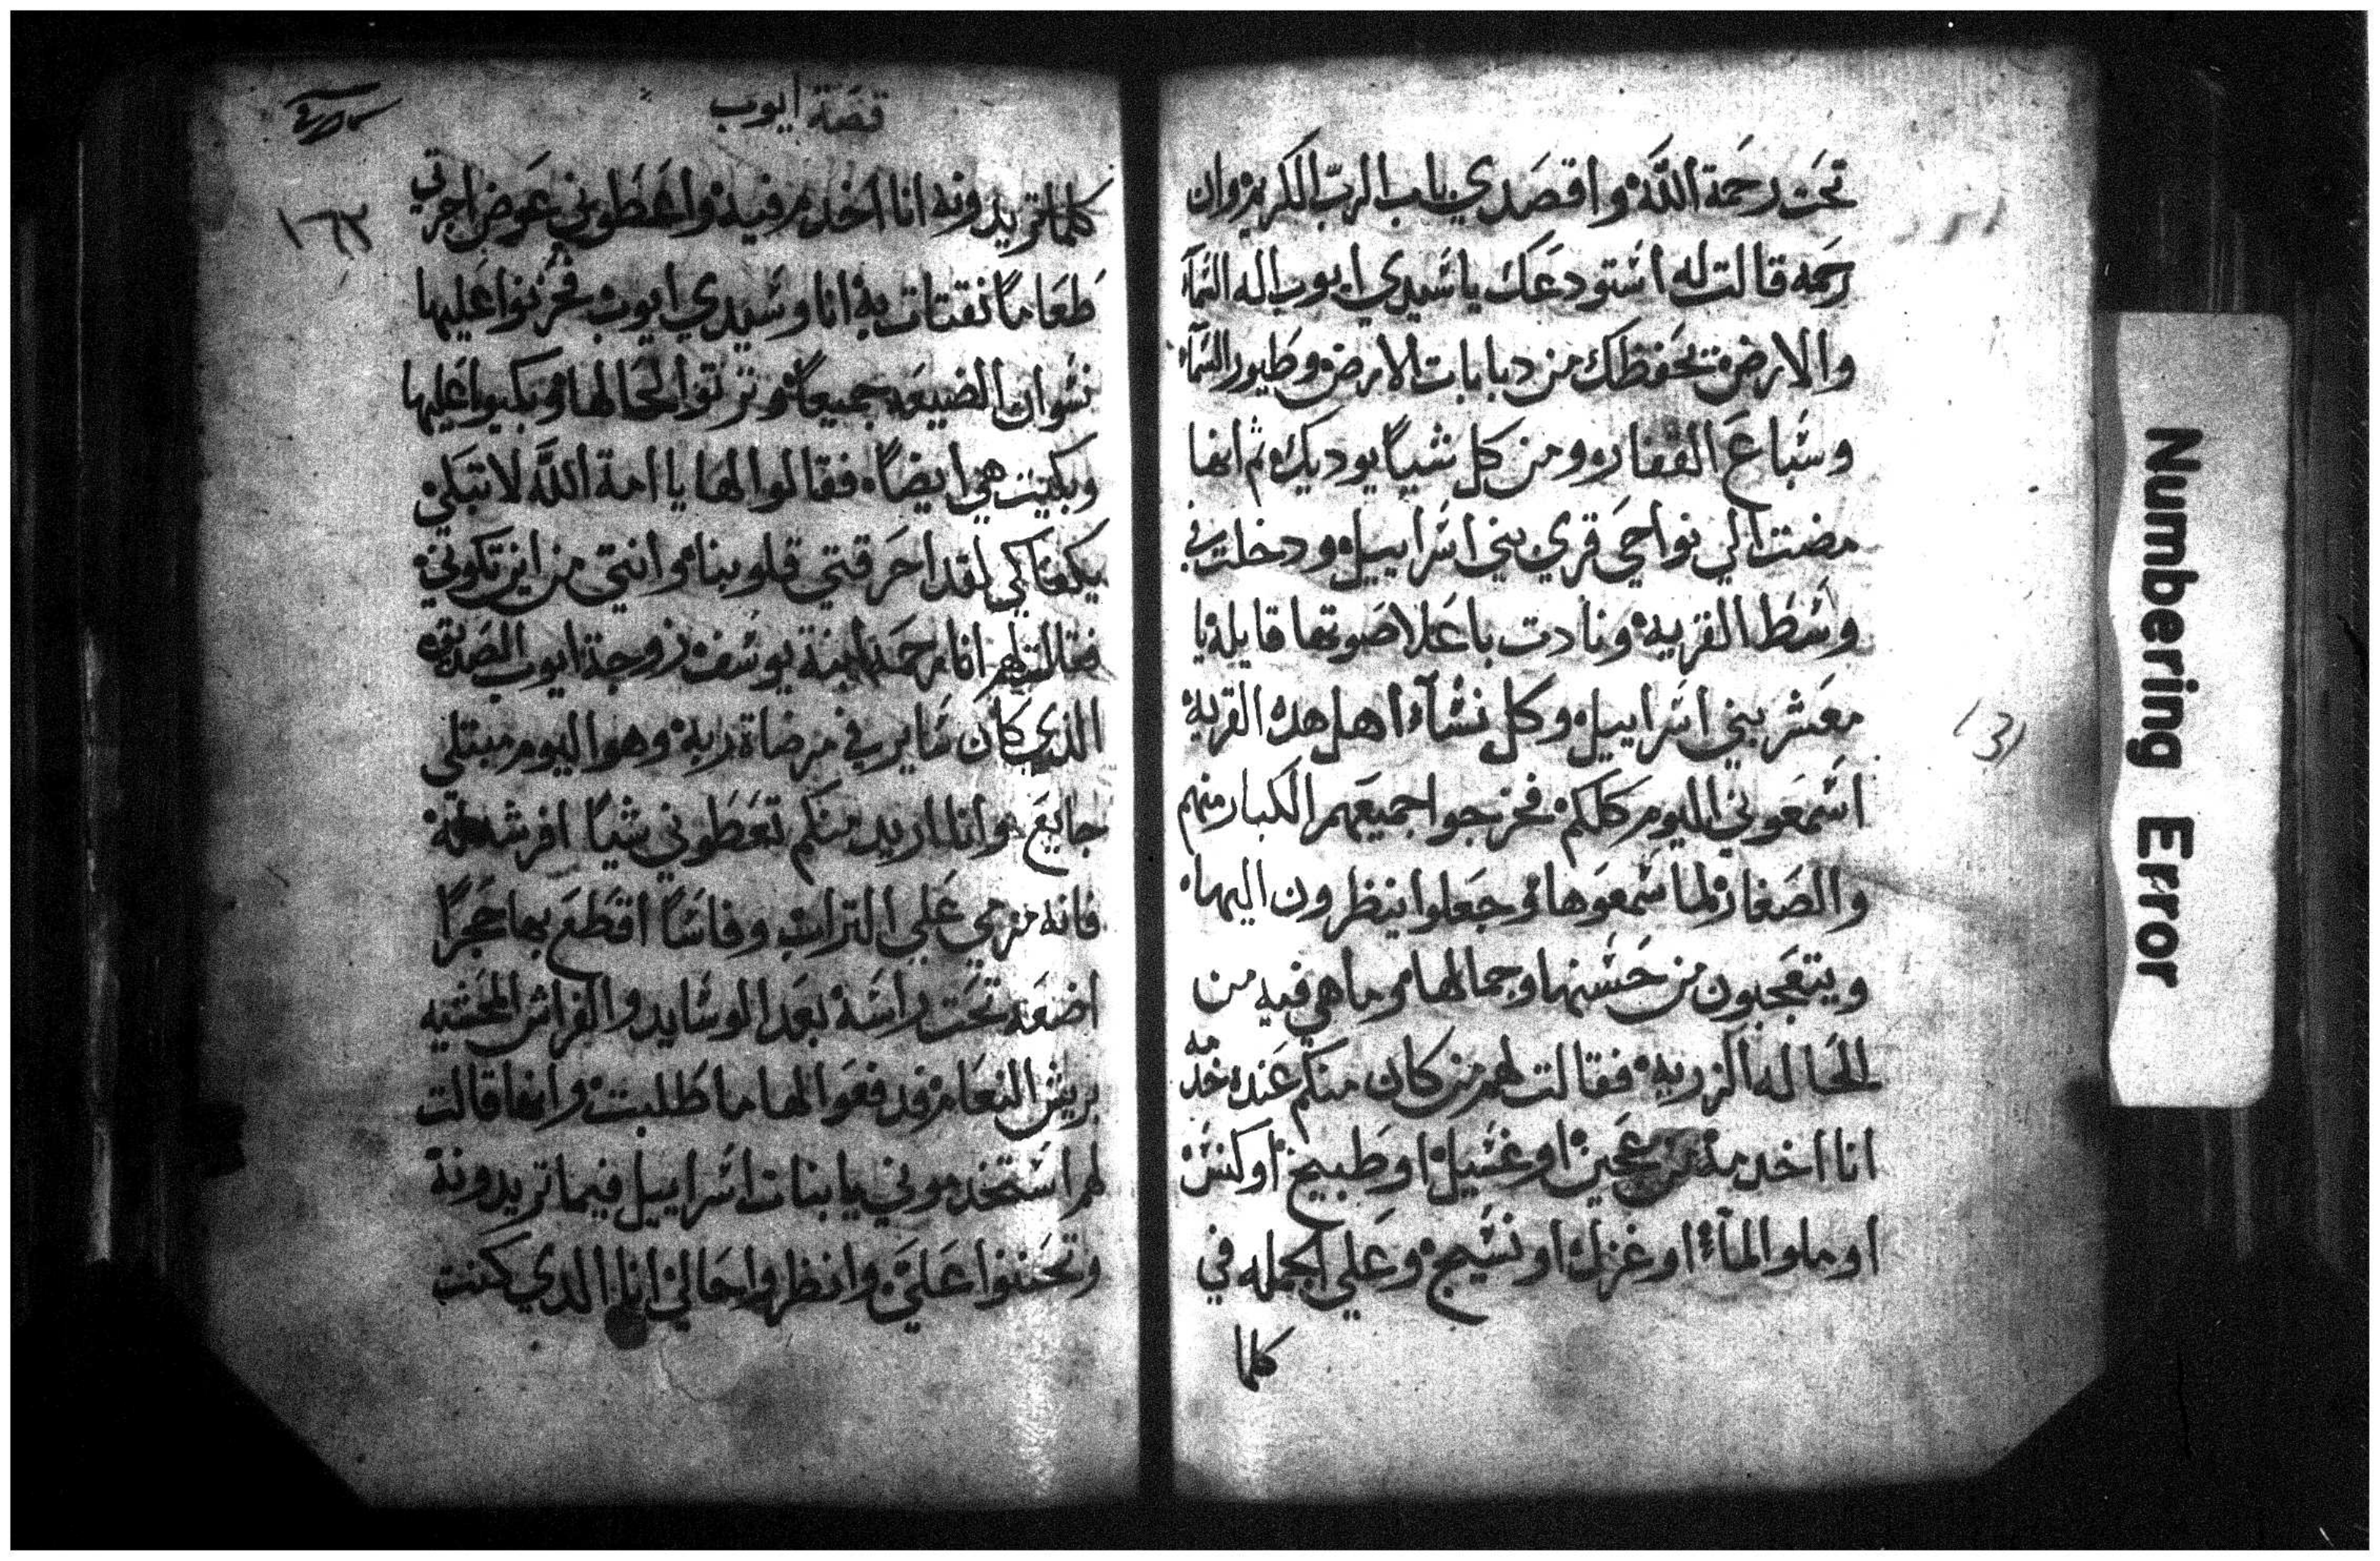 تحت رحمة الله واقصدي باب الرب الكريم وان
رحمه قالت له استودعك ياسيدي ايوب اله السمآ
والارض تحفظك من دبابات الارض وطيور السمآء
وسباع القفار ومن كل شياً يوديك ثم انها
مضت الي نواحي قري بني اسراييل ودخلت في
وسط القريه ونادت باعلا صوتها قايلة يا
معشر بني اسراييل وكل نسآء اهل هده القريه
اسمعوني اليوم كلكم فخرجوا جميعهم الكبار منهم
والصغار لما سمعوها وجعلوا ينظرون اليها
ويتعجبون من حسنها وجمالها وما هي فيه من
الحاله الزريه فقالت لهم من كان منكم عنده خدمه
انا اخدمه من عجين او غسيل او طبيخ او كنس
او ملو المآء او غزل او نسيج وعلي الجمله في
كلما
قصة ايوب
١٦٣
كلما تريدونه انا اخدم فيه واعطوني عوض اجرتي
طعاماً نقتات به انا وسيدي ايوب فحزنوا عليها
نسوان الضيعه جميعاً ورتوا لحالها وبكيوا عليها
وبكيت هي ايضاً فقالوا لها يا امة الله لا تبكي
يكفاكي لقد احرقتي قلوبنا وانتي من اين تكوني
فقالت لهم انا رحمه ابنة يوسف زوجة ايوب الصديق
الذي كان ساير في مرضاة ربه وهوا اليوم مبتلي
جايع وانا اريد منكم تعطوني شياً افرشه له
فانه مرمي علي التراب وفاساً اقطع بها حجراً
اضعه تحت راسه بعد الوسايد والفراش المحشيه
بريش النعام فدفعوا لها ما طلبت وانها قالت
لهم استخدموني يا بنات اسراييل فيما تريدونه
وتحننوا علي وانظروا حالي انا الدي كنت
(3)
Numbering Error